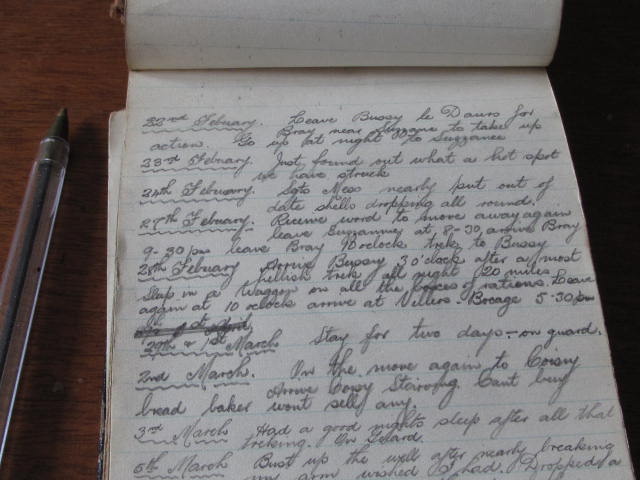 22nd Febuary. Leave Bussy le Daurs for
action. Bray near Suzzane to take up
Go up at night to Suzzance
23rd Febuary. Just found out what a hot spot
we have struck
24th Febuary. Sgts Mess nearly put out of
date shells dropping all round.
27th Febuary. Receive word to move away again
leave Suzzannes at 8-30, arrive Bray
9-30 pm leave Bray 10 oclock trek to Bussy
28th Febuary Arrive Bussy 3 o'clock after a most
hellish trek all night 20 miles
Slap in a Waggon on all the boxes of rations. Leave
again at 10 oclock arrive at Villers-Bocage 5-30 pm
29th & 1st March Stay for two days - on guard.
2nd March. On the move again to Coisy
Arrive Coisy Starving Cant buy
bread baker wont sell any.
3rd March Had a good nights sleep after all that
treking. On Guard.
5th March Bust up the well after nearly breaking
my arm wished I had. Dropped a